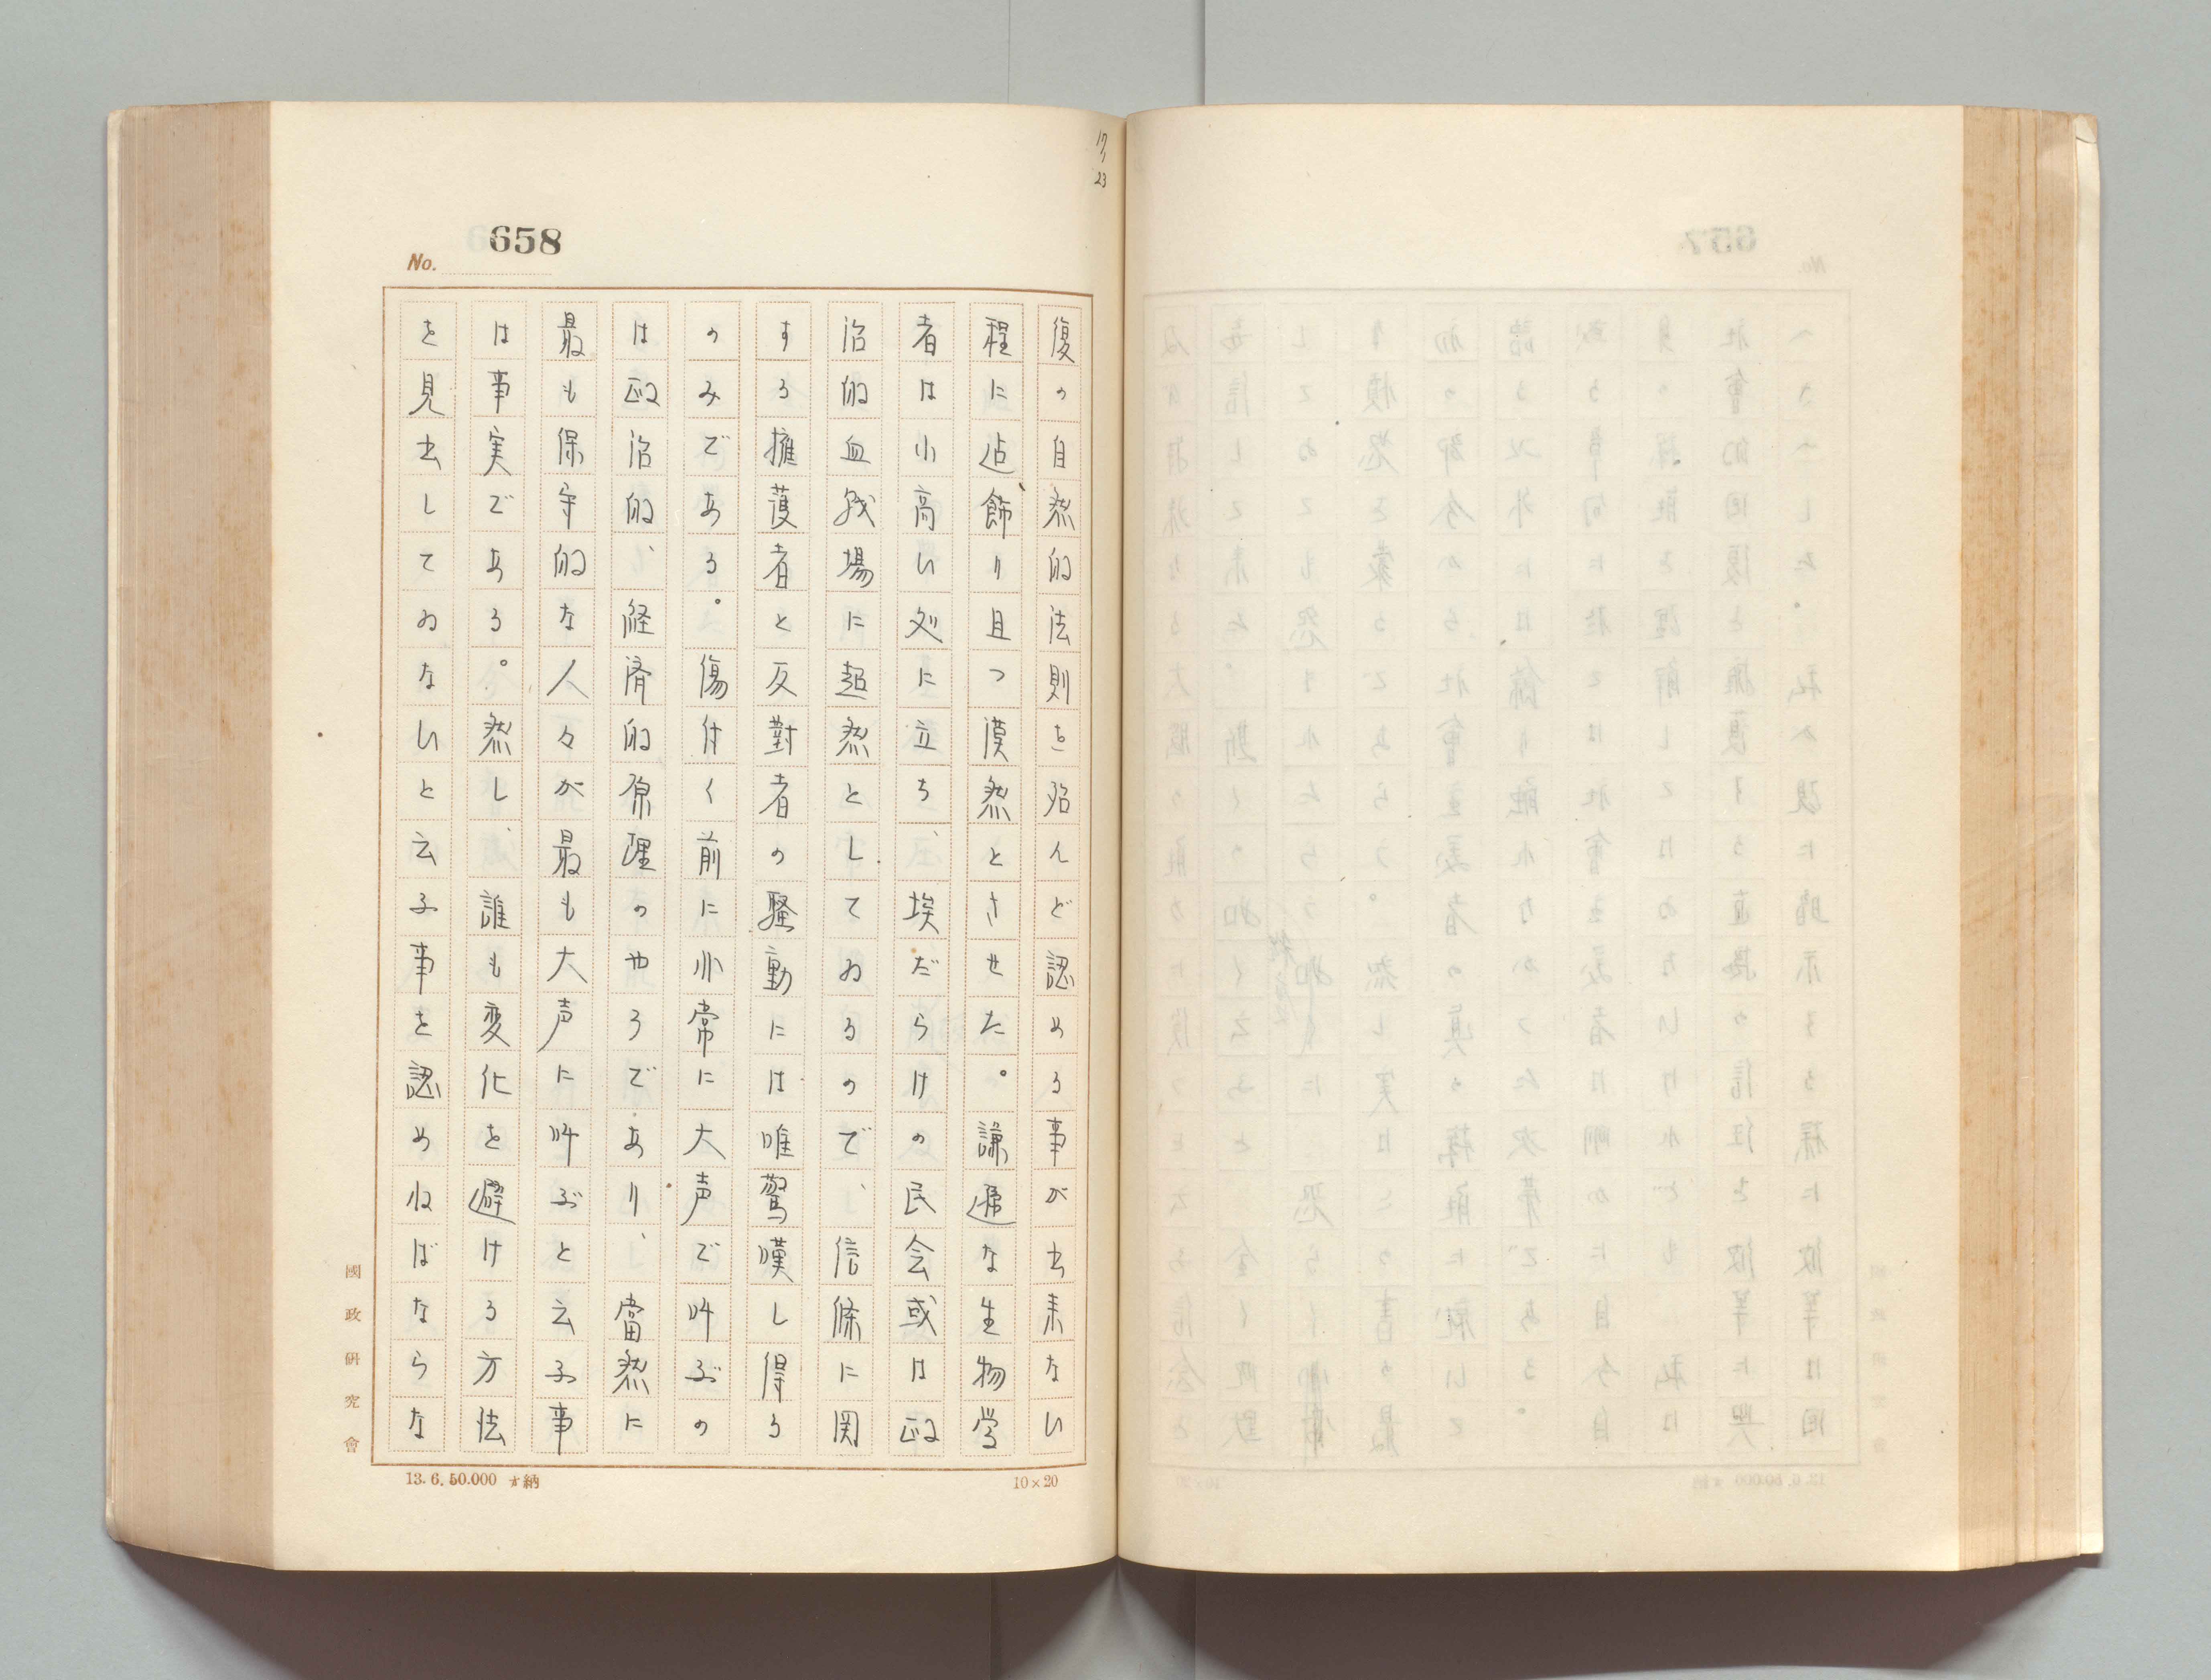 17/1
23
658
No.
復の自然的法則を殆んど認める事が出来ない
程に迠飾り且つ漠然とさせた。謙遜な生物学
者は小高い処に立ち、埃だらけの民会或は政
治的血戦場に超然としてゐるので、信條に関
する擁護者と反對者の騒動には唯驚嘆し得る
のみである。傷付く前に非常に大声で叫ぶの
は政治的、経済的原理のやうであり、當然に
最も保守的な人々が最も大声に叫ぶと云ふ事
は事実である。然し、誰も変化を避ける方法
を見出してゐないと云ふ事を認めねばならな
國政研究會
13.6.50.000 納
10×20